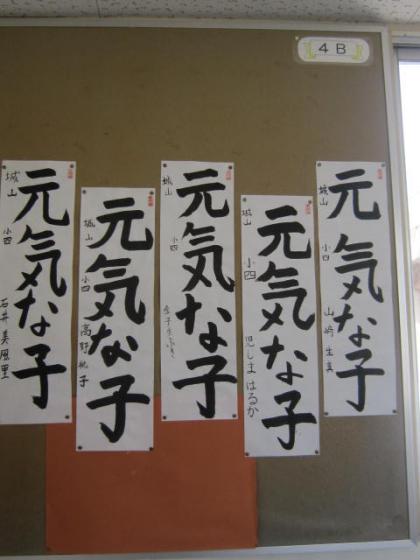 4B
元気な子
城山
小四
山崎生真
元気な子
城山
小四
児じまはるか
元気な子
城山
小四
元気な子
城山
小四
高野桃子
元気な子
城山
小四
石井美風里